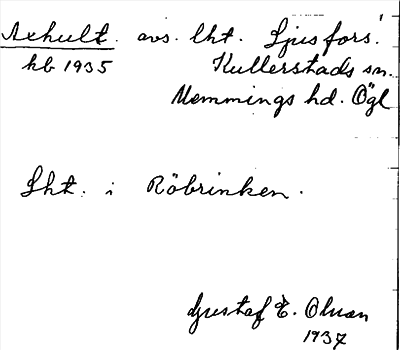 Axhult. avs. lht. Ljusfors.
kb 1935 Kullerstads sn.
Memmings hd. Ögl
Lht. i Röbrinken.
Gustaf E. Olsson
1937